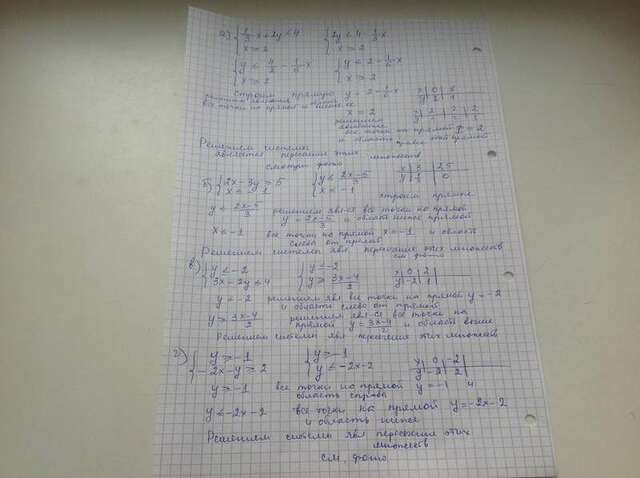 а) { 1/3 x + 2y ≤ 4 { 2y ≤ 4 - 1/3 x
x ≥ 2 x ≥ 2
{ y ≤ 4/2 - 1/6 x { y ≤ 2 - 1/6 x
x ≥ 2 x ≥ 2
Строим прямую y = 2 - 1/6 x x | 0
все точки на прямой и ниже y | 2
x = 2
решением
все точки на прямой = 2
и область правее этой прямой
Решением системы
является пересечение этих множеств
смотри фото
Б) { 2x - 3y ≥ 5 { y ≤ (2x-5)/3
x ≤ -1 x ≤ -1 y 0
строим прямые
y ≤ (2x-5)/3 решением явл-ся все точки на прямой
y = (2x-5)/3 и область ниже прямой
x ≤ -1 все точки на прямой x = -1 и область
слева от прямой
Решением системы явл. пересечение этих множеств
см фото
в) { y ≤ -2 { y ≤ -2 x | 0 | 2
3x - 2y ≤ 4 y ≥ (3x-4)/2 y | -2 | 1
y ≤ -2 решением явл все точки на прямой y = -2
и области слево от прямой
y ≥ (3x-4)/2 решением явл-ся все точки на
прямой y = (3x-4)/2 и область выше
Решением системы явл пересечения этих множеств
г) { y ≥ -1 { y ≥ -1 x | 0 | -2
-2x - y ≥ 2 y ≤ -2x - 2 y | -2 | 2
y ≥ -1 все точки на прямой y = -1 и
область справа
y ≤ -2x - 2 все точки на прямой y = -2x - 2
и область ниже
Решением системы явл пересечения этих
множеств
см. фото